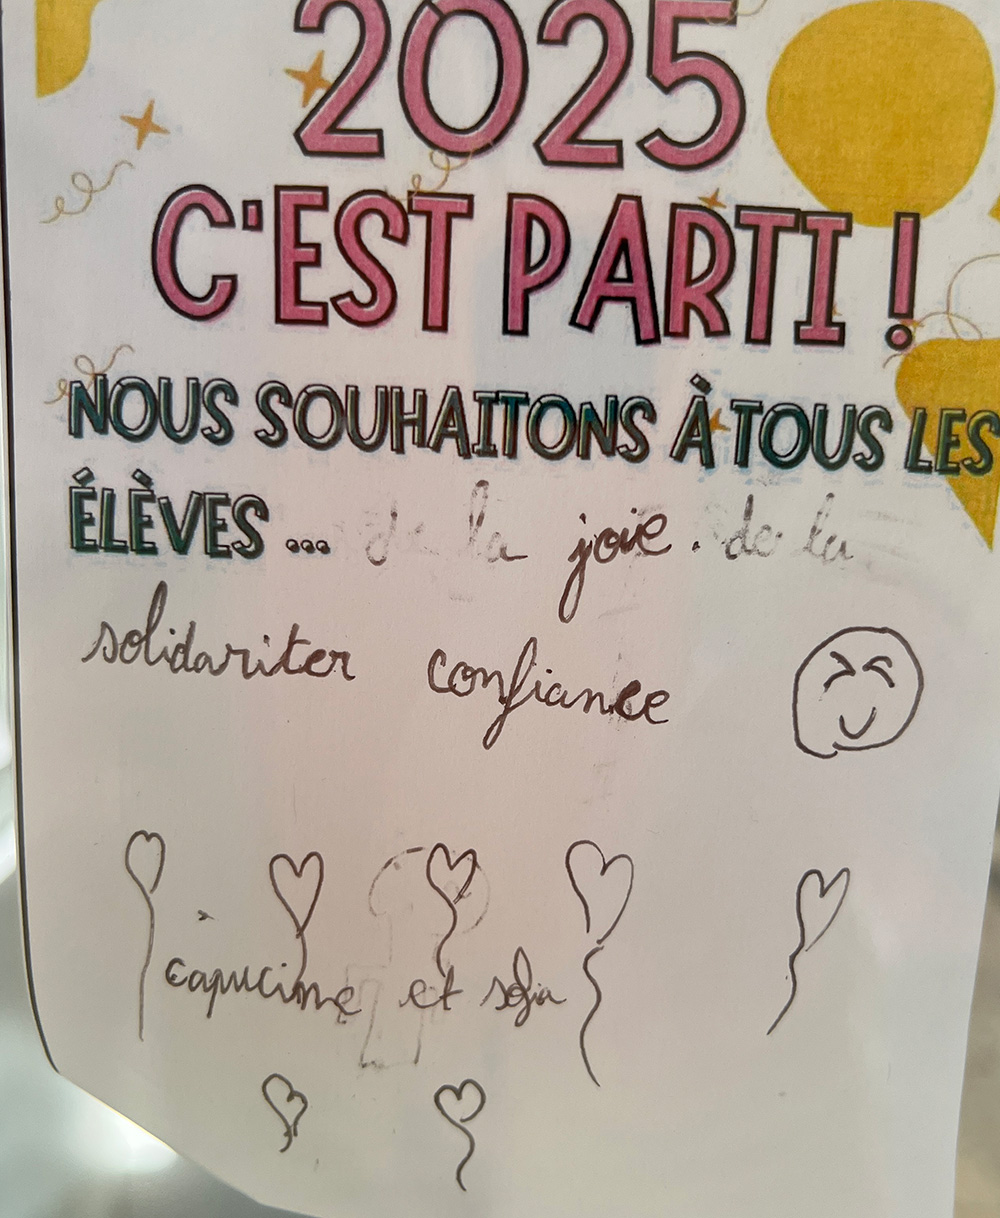 2025
C'EST PARTI !
NOUS SOUHAITONS À TOUS LES
ÉLÈVES ... de la joie. de la
solidariter confiance
capucine et sofia